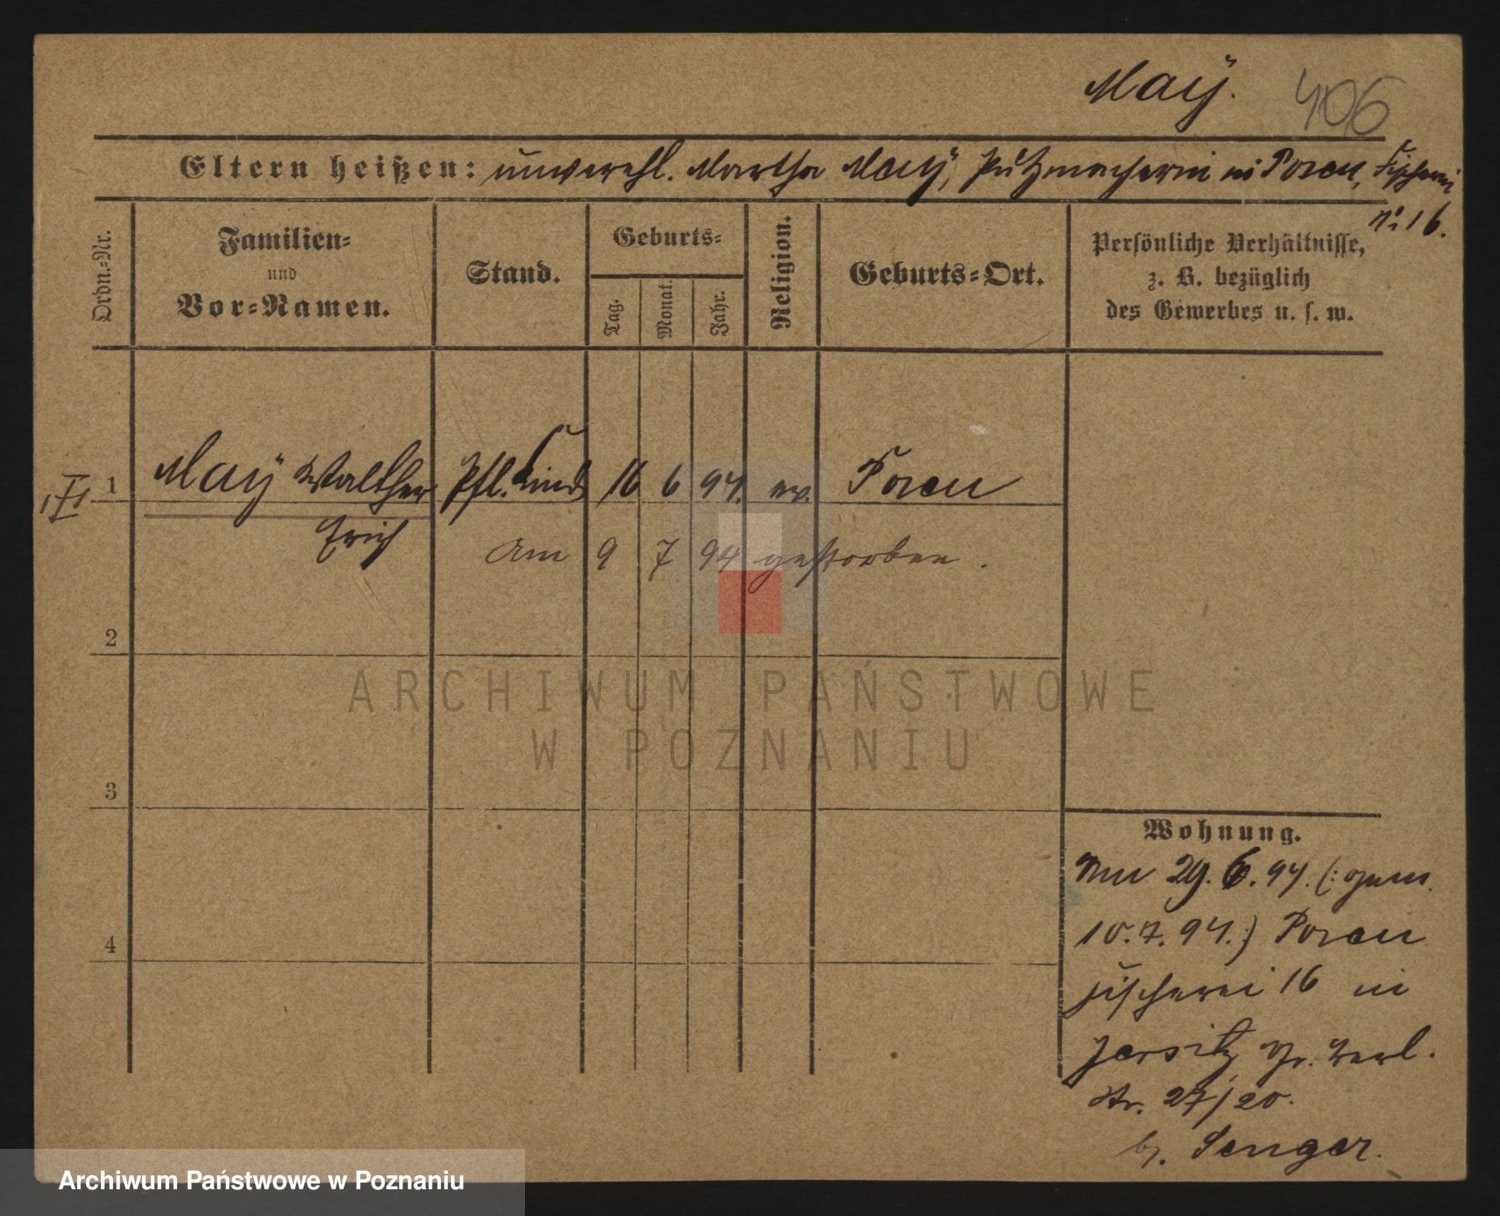 Maÿ.
406
Eltern heißen: unverehl. Martha Maÿ, Putzmacherin in Posen, Fischerei
No 16.
Ordn.-Nr.
Familien-
und
Vor-Namen.
Stand.
Geburts-
Tag.
Monat.
Jahr.
Religion.
Geburts-Ort.
Persönliche Verhältnisse,
z. B. bezüglich
des Gewerbes u. s. w.
1 Maÿ Walther Pfl. Kind 16 6 94. ev. Posen
Erich
Am 9 7 94 gestorben.
2
ARCHIWUM PAŃSTWOWE
W POZNANIU
3
4
Wohnung.
29. 6. 94. (: gem.
10. 7. 94.) Posen
Fischerei 16 in
Jersitz, Gr. Berl.
Str. 27/20.
b. Senger.
Archiwum Państwowe w Poznaniu